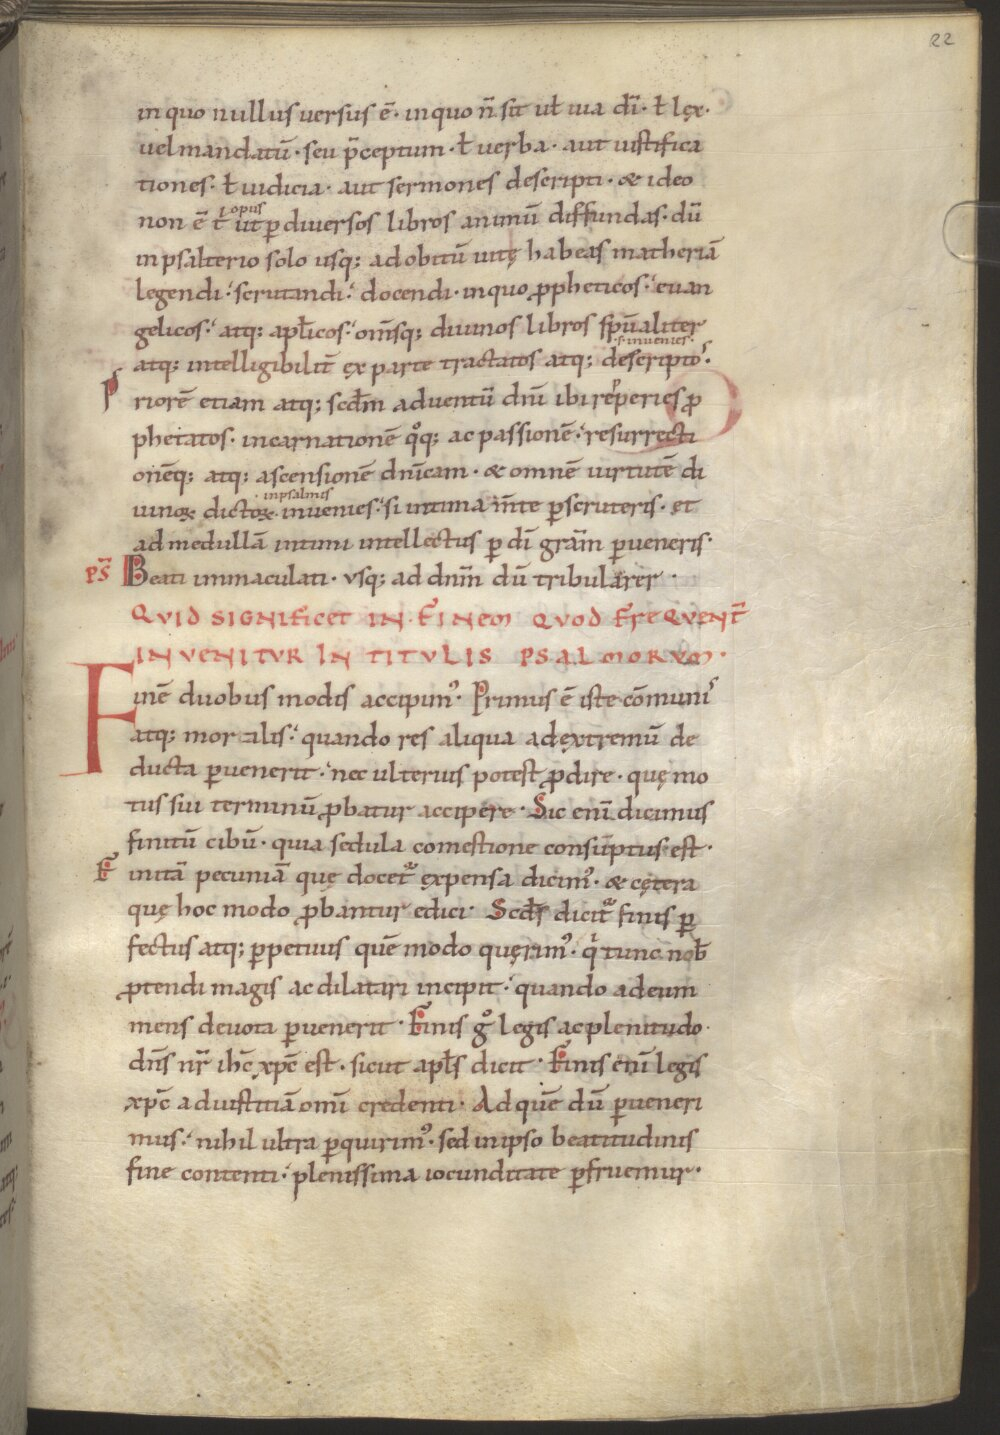 22
in quo nullus uersus ē· in quo n̄ sit uł uia dī· ł lęx·
uel mandatū· seu p̄ceptum· ł uerba· aut iustifica
tiones· ł iudicia· aut sermones descripti· & ideo
ł opus
non ē ut ꝑ diuersos libros animū diffundas· dū
in psalterio solo usq; ad obitū uitę habeas matheriā
legendi· scrutandi· docendi· in quo ꝓpheticos· euan
gelicos· atq; apłicos· om̄sq; diuinos libros sp̄ualiter
·s· inuenies·
atq; intelligibilit̄ ex parte tractatos atq; descriptos·
P riorē etiam atq; scd̄m aduentū dn̄i ibi repperies ꝓ
phetatos· incarnationē qͦq; ac passionē· resurrecti
onēq; atq; ascensionē dn̄icam· & omnē uirtutē di
in psalmis
uinoꝝ dictoꝝ inuenies· si intima m̄te ꝑscruteris· et
ad medullā intimi intellectus ꝑ dī grām ꝑueneris·
PS̄ Beati inmaculati· vsq; ad dn̄m dū tribularer·
QVID SIGNIFICET IN FINEM QVOD FREQVENT̄
INVENITVR IN TITVLIS PSALMORVM·
Finē duobus modis accipimꝰ· Primus ē iste cōmunis
atq; mortalis· quando res aliqua ad extremū de
ducta ꝑuenerit· nec ulterius potest ꝓdire· quę mo
tus sui terminū ꝓbatur accipere· Sic enī dicimus
finitū cibū· quia sedula comestione consūptus est·
F initā pecuniā quę docet᷑ expensa dicimꝰ· & cętera
quę hoc modo ꝓbantur edici· Scd̄s dicit᷑ finis ꝑ
fectus atq; ꝑpetuus quē modo quęrimꝰ· qi tunc nob̄
ꝓtendi magis ac dilatari incipit· quando ad eum
mens deuota ꝑuenerit· Finis gͦ legis ac plenitudo
dn̄s nr̄ ihc̄ xpc̄ est· sicut apłs dicit· Finis enī legis
xpc̄ ad iustitiā omī credenti· Ad quē dū ꝑueneri
mus· nihil ultra ꝑquirimꝰ· sed in ipso beatitudinis
fine contenti· plenissima iocunditate ꝑfruemur·